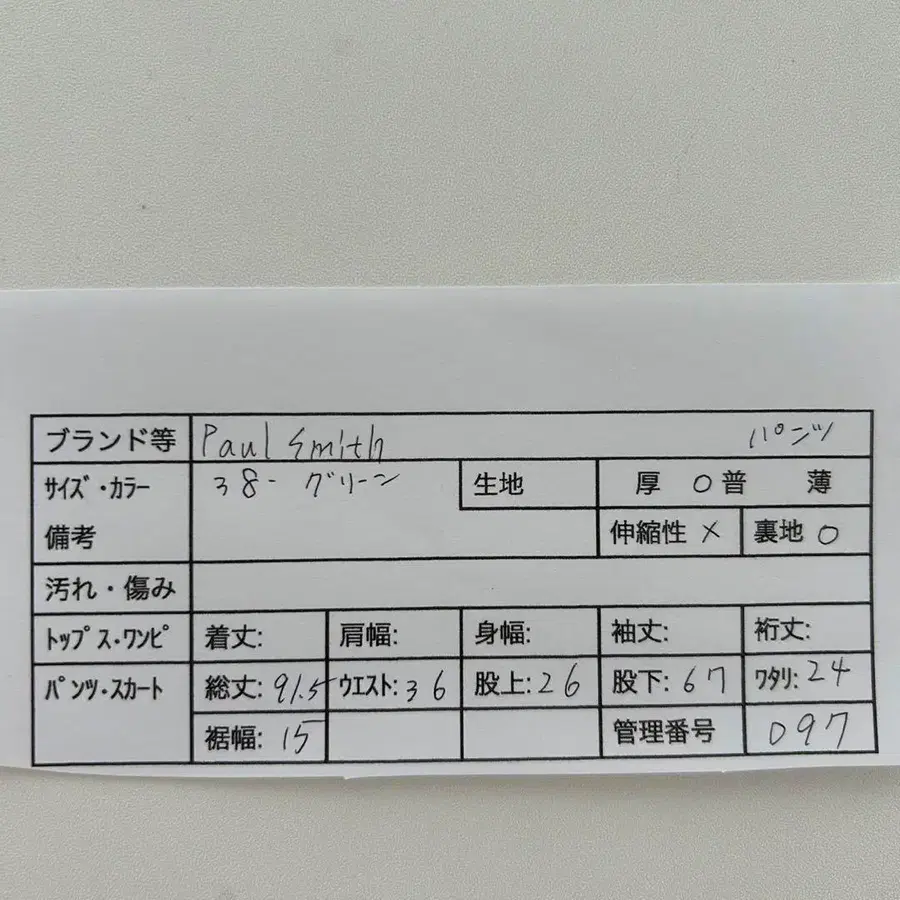 ブランド等 Paul Smith パンツ
サイズ・カラー 38- グリーン 生地 厚 ○普 薄
備考 伸縮性 × 裏地 ○
汚れ・傷み
トップス・ワンピ 着丈: 肩幅: 身幅: 袖丈: 裄丈:
パンツ・スカート 総丈: 91.5 ウエスト: 36 股上: 26 股下: 67 ワタリ: 24
裾幅: 15 管理番号 097